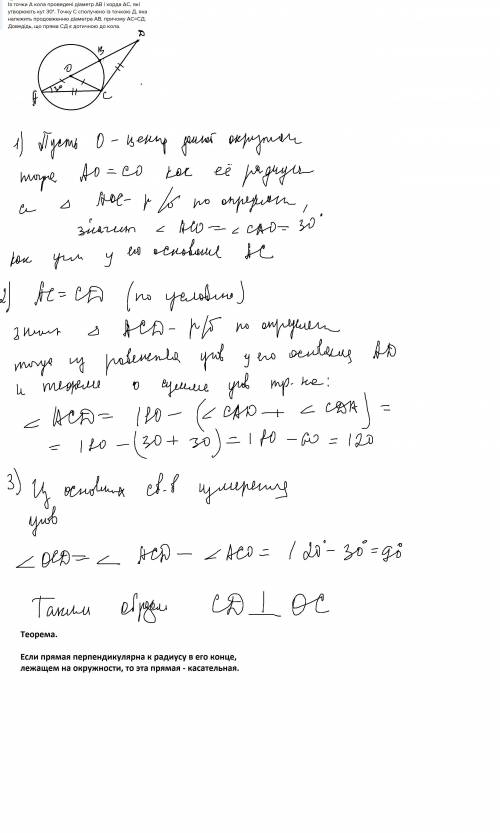 Із точки А кола проведені діаметр АВ і хорда АС, які
утворюють кут 30°. Точку С сполучено із точкою Д, яка
належить продовженню діаметра АВ, причому АС=СД.
Доведідь, що пряма СД є дотичною до кола.
D
B
O
30°
A
C
1) Пусть O - центр данной окружн
тогда AO = CO как её радиусы
и △ AOC - р/б по определен,
значит ∠ ACO = ∠ CAO = 30°
как углы у его основания AC
2) AC = CD (по условию)
значит △ ACD - р/б по определен
тогда из равенства углов у его основания AD
и теореме о сумме углов тр-ка:
∠ ACD = 180 - (∠ CAD + ∠ CDA) =
= 180 - (30 + 30) = 180 - 60 = 120
3) Из основных св-в измерения
углов
∠ OCD = ∠ ACD - ∠ ACO = 120° - 30° = 90°
Таким образом CD ⊥ OC
Теорема.
Если прямая перпендикулярна к радиусу в его конце,
лежащем на окружности, то эта прямая - касательная.